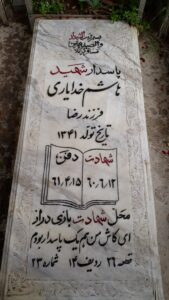 پاسدار شهید
هاشم خدایاری
فرزند رضا
تاریخ تولد ۱۳۴۱
شهادت دفن
۶۰,۶,۱۲ ۶۱,۴,۱۵
محل شهادت بازی دراز
ای کاش من هم یک پاسدار بودم
قطعه ۲۶ ردیف ۱۴ شماره ۲۳